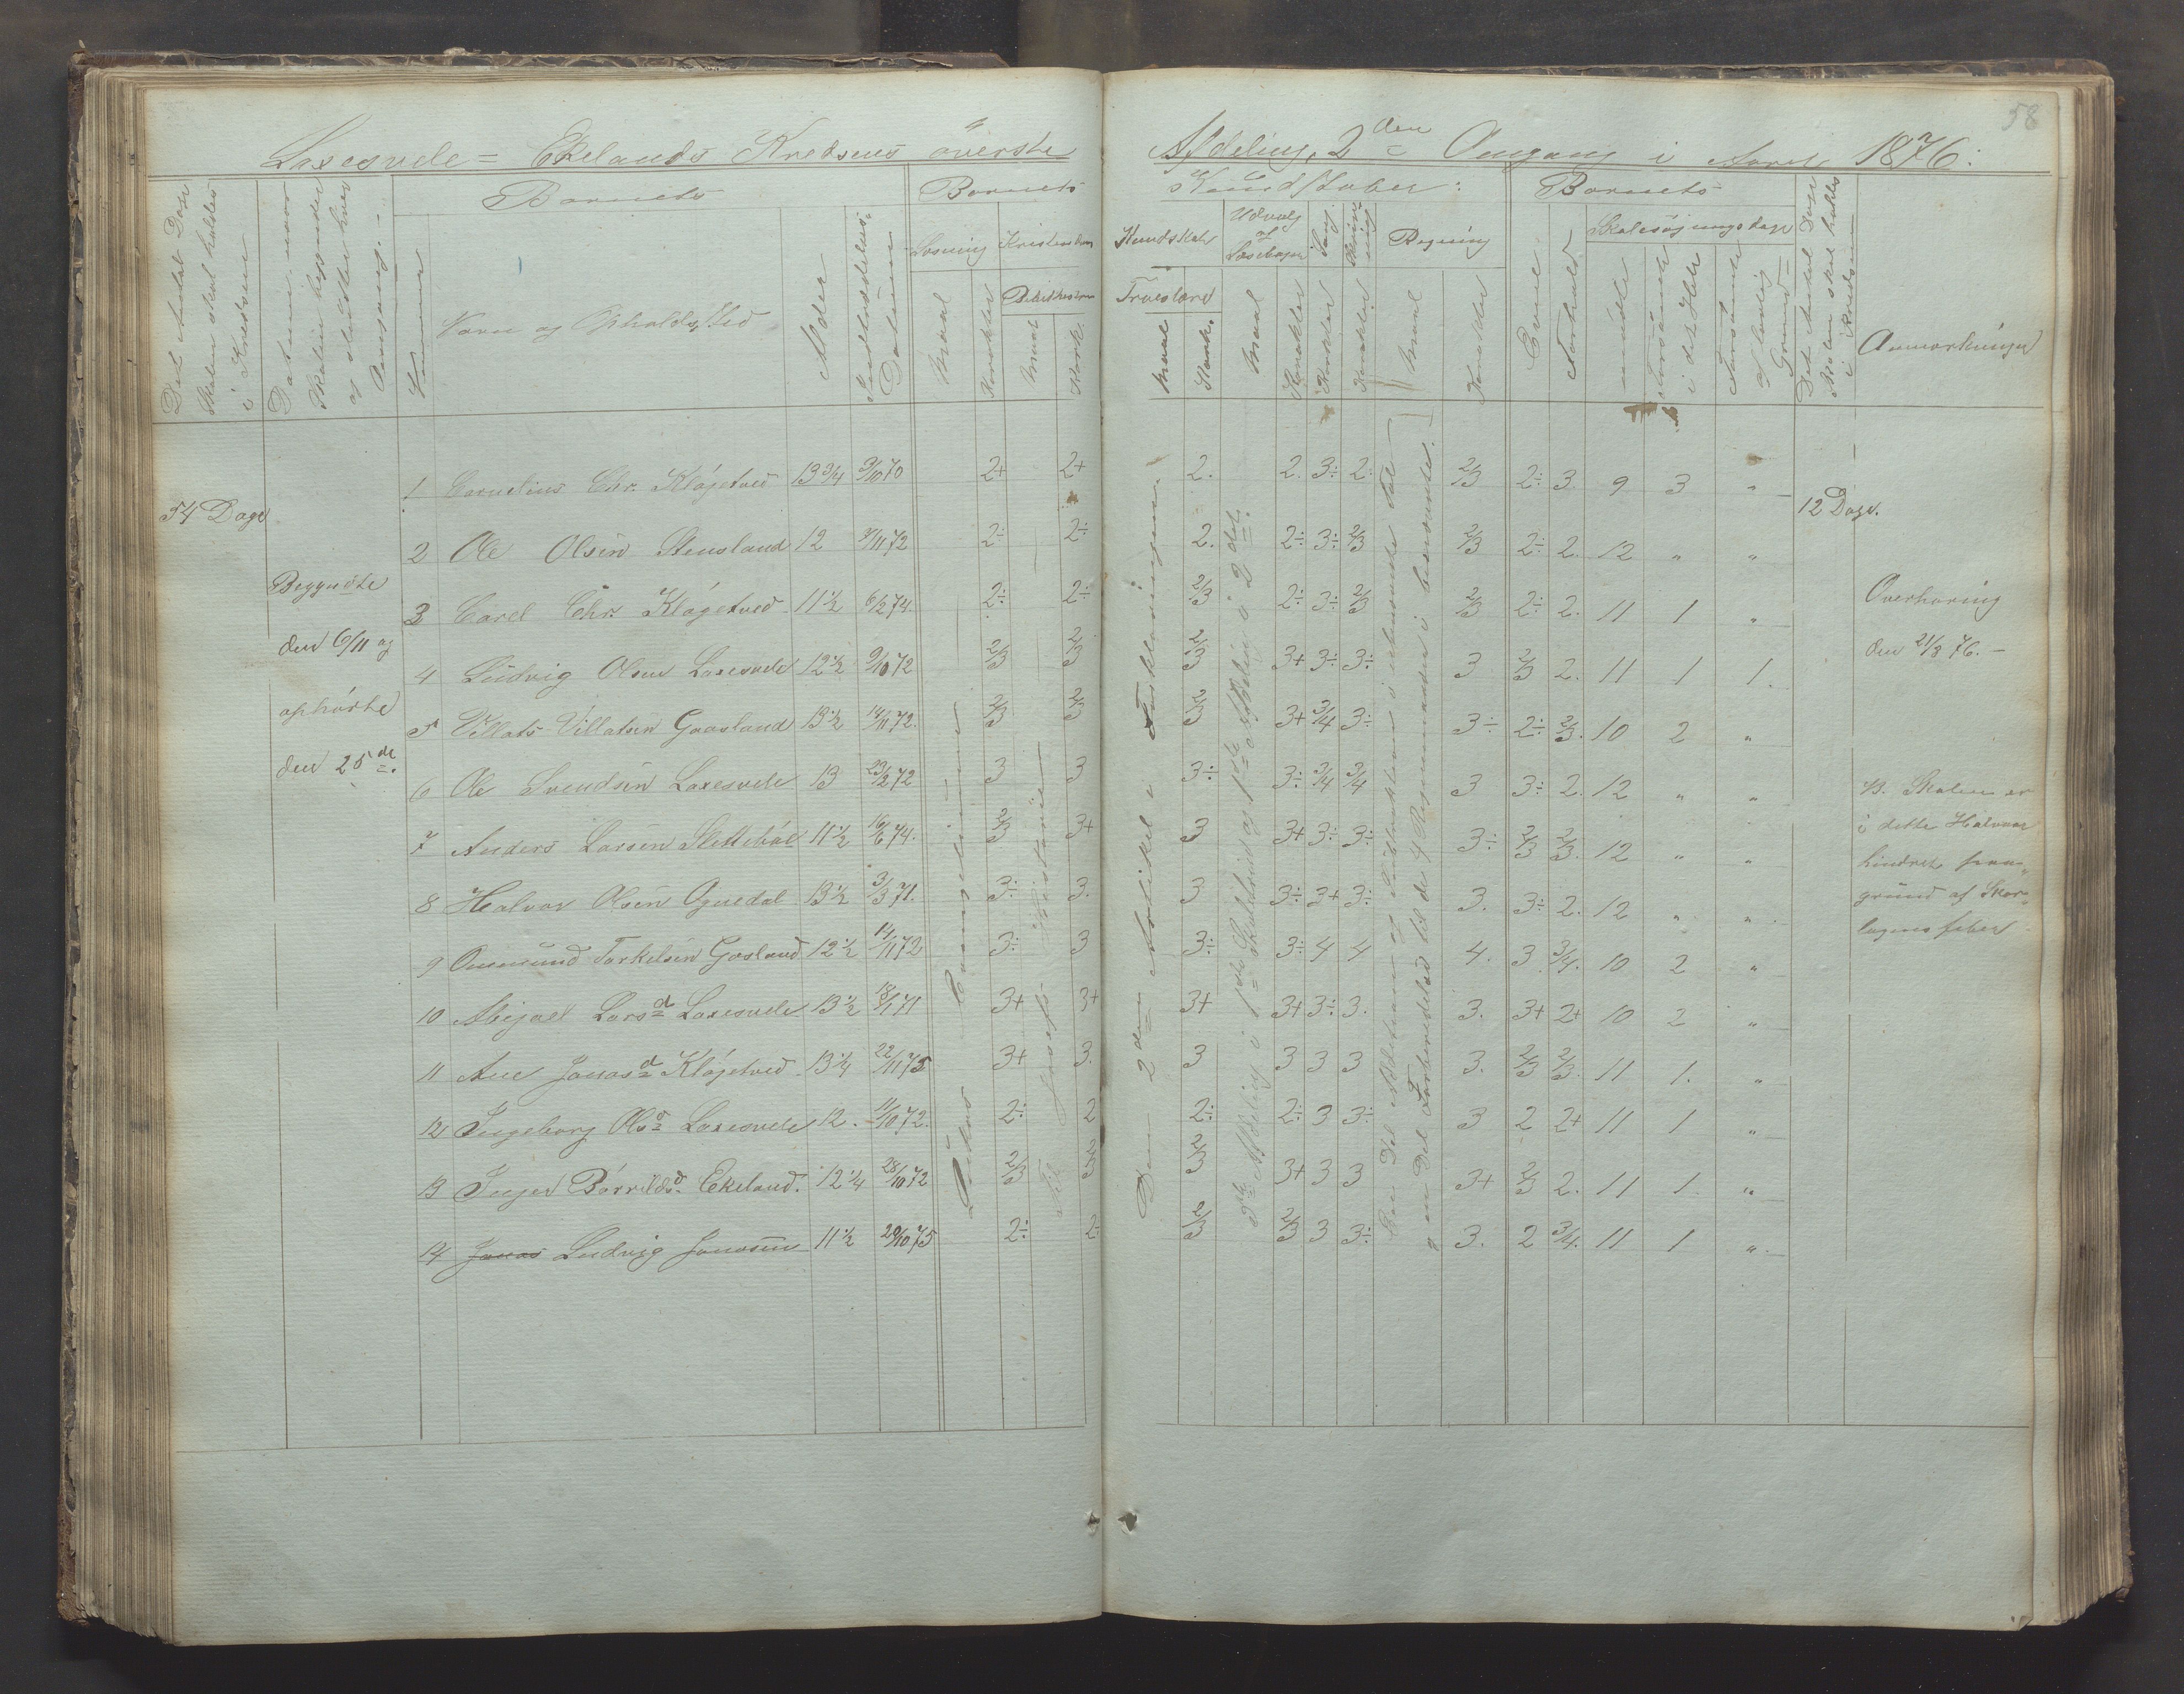 58
Laxesvele = Ekelands Kredsens överste Afdeling, 2den Omgang i Aaret 1876:
Det Antal Dage Skolen skal holdes i Kredsen
Datum, naar Skolen begyndte og sluttede hver Omgang.
Nummer
Barnets
Navn og Opholds Sted
Alder
Indtrædelses Datum
Barnets Kundskaber:
Læsning
Maal
Karakter
Kristendom
Bibelhistorie
Maal
Kark.
Kundskab
Troeslære
Maal
Kark.
Udvalg af Læsebogen
Maal
Karakter
Sang
Karakter
Skrivning
Karakter
Regning
Maal
Karakter
Barnets
Evne
Forhold
Skolesøgningsdage
mødte
forsømte i det Hele
forsømte af lovlig Grund
Det Antal Dage Skolen skal holdes i Kredsen
Anmærkninger
54 Dage
Begyndte
den 6/11 og
ophörte
den 25de.
1 Cornelius Chr. Klögetved 13 3/4 3/10 70 2+ 2+ 2. 2. 3÷ 2÷ 2/3 2÷ 3. 9 3 "
2 Ole Olsen Stensland 12 4/11 72 2÷ 2÷ 2. 2÷ 3÷ 2/3 2/3 2÷ 2. 12 " "
3 Carel Chr. Klögetved 11 1/2 6/2 74. 2÷ 2÷ 2/3 2÷ 3÷ 2/3 2/3 2÷ 2. 11 1 "
4 Ludvig Olsen Laxesvele 12 1/2 9/10 72 2/3 2/3 2/3 3+ 3÷ 3÷ 3 2/3 2. 11 1 1.
5 Villats Villatsen Gaasland 13 1/2 14/11 72. 2/3 2/3 2/3 3+ 3/4 3÷ 3÷ 2÷ 2/3. 10 2 "
6 Ole Svendsen Laxesvele 13 23/2 72 3 3 3÷ 3÷ 3/4 3/4 3 3÷ 2. 12 " "
7 Anders Larsen Sletteböe 11 1/2 16/6 74. 2/3 3+ 3 3+ 3÷ 3÷ 3÷ 2/3 2/3. 12 " "
8 Halvor Olsen Ognedal 13 1/2 3/3 71. 3÷ 3. 3 3÷ 3+ 3÷ 3. 3÷ 2. 12 " "
9 Ommund Torkelsen Gosland 12 1/2 14/11 72 3÷ 3 3÷ 3÷ 4 4 4. 3 3/4. 10 2 "
10 Abigael Larsd Laxesvele 13 1/2 18/1 71 3+ 3+ 3+ 3+ 3÷ 3. 3. 3+ 2+ 10 2 "
11 Ane Jonasd Klögetved 13 1/4 22/11 73 3+ 3. 3 3 3 3 3. 2/3 2/3. 11 1. "
12 Ingeborg Olsd Laxesvele 12. 11/10 72. 2÷ 2 2÷ 2÷ 3 3÷ 3 2 2+ 11 1 "
13 Inger Börrildsd. Ekeland. 12 1/4 28/10 72 2/3 2/3 2/3 3+ 3 3 3+ 2/3 2. 11 1 "
14 Jonas Ludvig Jonassen 11 1/2 20/10 75 2÷ 2÷ 2/3 2/3 3 3÷ 3. 2 3/4. 11 1 ".
Den 2den Artikel i Forklaringen.
12 Dage.
Overhøring
den 21/3 76. —
NB. Skolen er
i dette Halvaar
hindret paa
grund af Skar-
lagensfeber